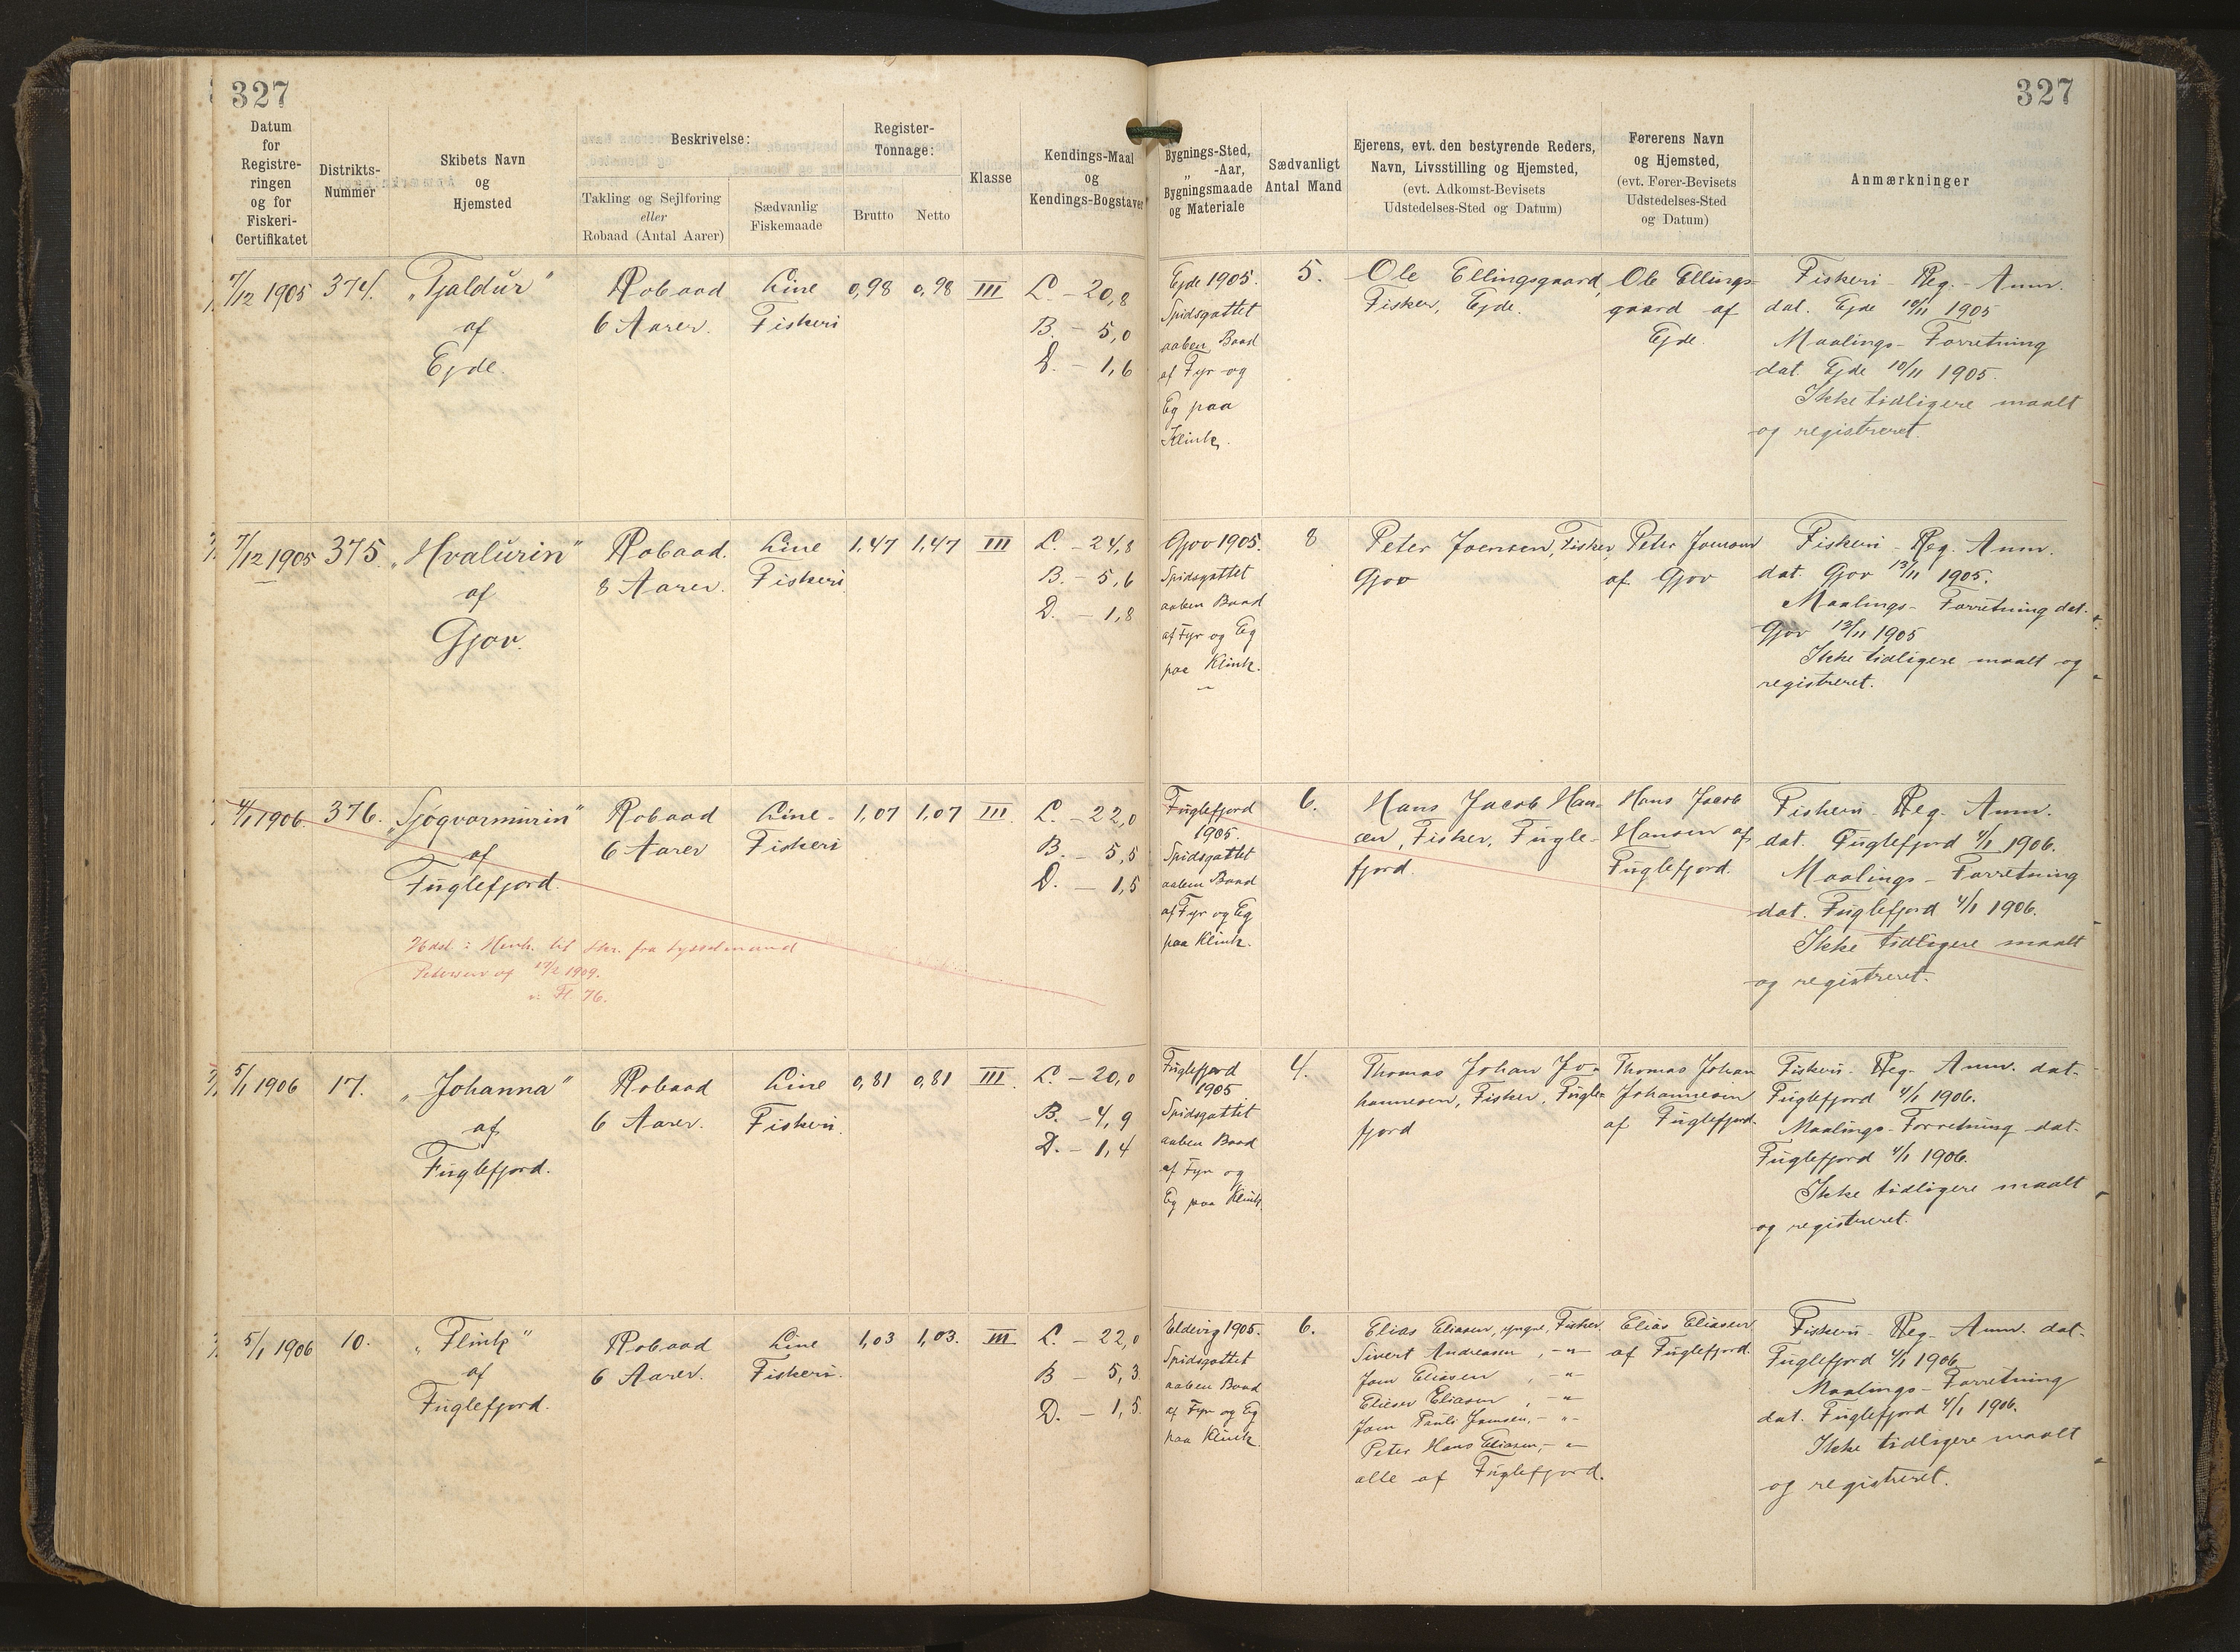 327
327
Datum
for
Registre-
ringen
og for
Fiskeri-
Certifikatet
Distrikts-
Nummer
Skibets Navn
og
Hjemsted
Beskrivelse:
Takling og Sejlføring
eller
Robaad (Antal Aarer)
Sædvanlig
Fiskemaade
Register-
Tonnage:
Brutto
Netto
Klasse
Kendings-Maal
og
Kendings-Bogstaver
Bygnings-Sted,
„ -Aar,
Bygningsmaade
og Materiale
Sædvanligt
Antal Mand
Ejerens, evt. den bestyrende Reders,
Navn, Livsstilling og Hjemsted,
(evt. Adkomst-Bevisets
Udstedelses-Sted og Datum)
Førerens Navn
og Hjemsted,
(evt. Fører-Bevisets
Udstedelses-Sted
og Datum)
Anmærkninger
7/12 1905
374.
„Tjaldur"
af
Ejde.
Robaad
6 Aarer.
Line
Fiskeri
0,98
0,98
III
L. - 20,8
B. - 5,0
D. - 1,6
Ejde 1905.
Spidsgattet
aaben Baad
af Fyr og
Eg paa
Klink.
5.
Ole Ellingsgaard,
Fisker, Ejde.
Ole Ellings-
gaard af
Ejde.
Fiskeri - Reg. - Anm.
dat. Ejde 10/11 1905
Maalings - Forretning
dat. Ejde 10/11 1905.
Ikke tidligere maalt
og registreret.
7/12 1905
375.
„Hvalurin"
af
Gjov.
Robaad.
8 Aarer.
Line
Fiskeri.
1,47
1,47
III
L. - 24,8
B. - 5,6
D. - 1,8
Gjov 1905.
Spidsgattet
aaben Baad
af Fyr og Eg
paa Klink.
8
Peter Joensen, Fisker,
Gjov
Peter Joensen
af Gjov
Fiskeri - Reg. Anm.
dat. Gjov 13/11 1905.
Maalings - Forretning dat.
Gjov 13/11 1905
Ikke tidligere maalt og
registreret.
4/1 1906.
376.
„Sjøgvarmurin"
af
Fuglefjord.
Robaad
6 Aarer
Line -
Fiskeri
1,07
1,07
III.
L. - 22,0
B. - 5,5
D. - 1,5
Udsl: Henh. til Skr. fra Sysselmand
Petersen af 1909.
Fl. 76.
Fuglefjord
1905.
Spidsgattet
aaben Baad
af Fyr og Eg
paa Klink.
6.
Hans Jacob Han-
sen, Fisker, Fugle-
fjord.
Hans Jacob
Hansen af
Fuglefjord.
Fiskeri - Reg. Anm.
dat. Fuglefjord 4/1 1906.
Maalings - Forretning
dat. Fuglefjord 4/1 1906.
Ikke tidligere maalt
og registreret.
5/1 1906
17.
„Johanna"
af
Fuglefjord.
Robaad
6 Aarer.
Line
Fiskeri.
0,81
0,81
III.
L. - 20,0
B. - 4,9
D. - 1,4
Fuglefjord
1905
Spidsgattet
aaben Baad
af Fyr og
Eg paa Klink.
4.
Thomas Johan Jo-
hannesen, Fisker, Fugle-
fjord
Thomas Johan
Johannesen
af Fuglefjord.
Fiskeri - Reg. Anm. dat.
Fuglefjord 4/1 1906.
Maalings - Forretning dat.
Fuglefjord 4/1 1906.
Ikke tidligere maalt
og registreret.
5/1 1906
10.
„Flink"
af
Fuglefjord.
Robaad
6 Aarer.
Line
Fiskeri.
1,03
1,03.
III
L. - 22,0
B - 5,3
D. - 1,5.
Eldevig 1905.
Spidsgattet
aaben Baad
af Fyr og Eg
paa Klink.
6.
Elias Eliasen, yngre, Fisker
Sivert Andreasen, -"-
Joen Eliasen, -"-
Elieser Eliasen, -"-
Joen Pauli Joensen, -"-
Peter Hans Eliasen, -"-
alle af Fuglefjord.
Elias Eliasen
af Fuglefjord.
Fiskeri - Reg. Anm. dat.
Fuglefjord 4/1 1906
Maalings - Forretning
dat. Fuglefjord 4/1 1906.
Ikke tidligere maalt
og registreret.